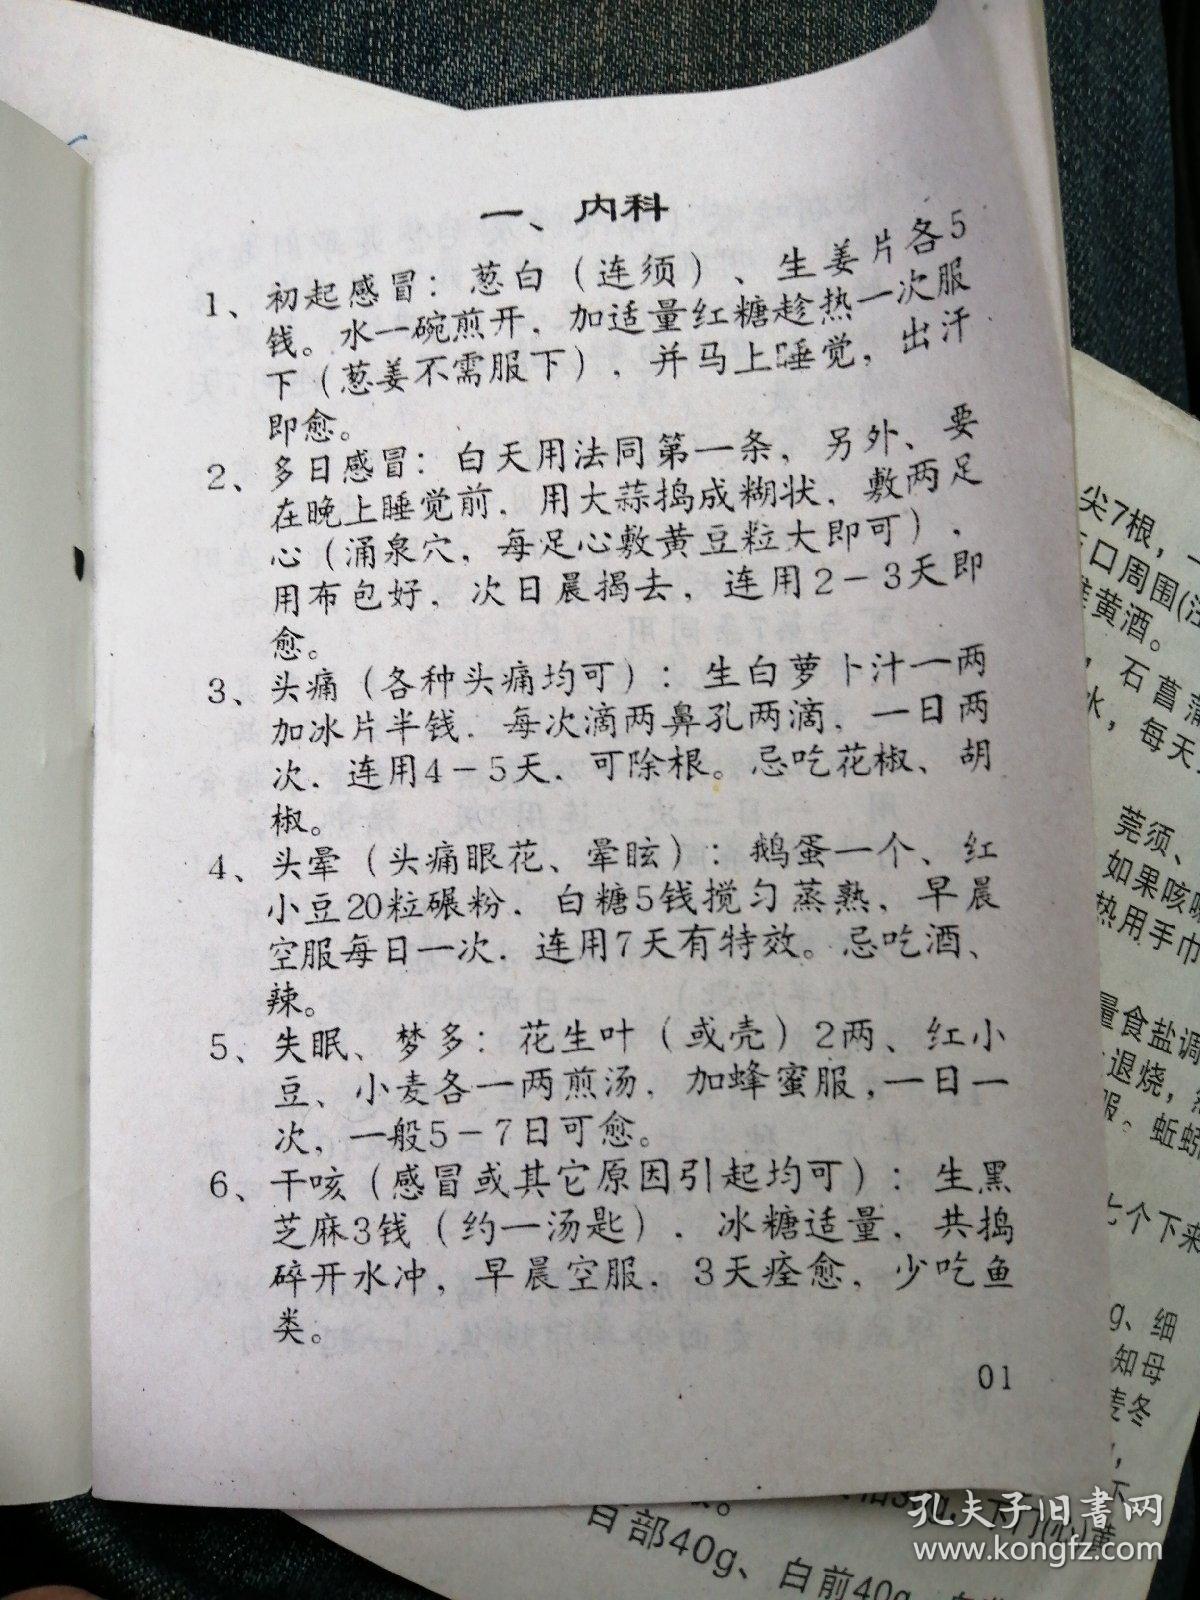 一、内科
1、初起感冒：葱白（连须）、生姜片各5
钱。水一碗煎开．加适量红糖趁热一次服
下（葱姜不需服下），并马上睡觉，出汗
即愈。
2、多日感冒：白天用法同第一条，另外、要
在晚上睡觉前．用大蒜捣成糊状．敷两足
心（涌泉穴，每足心敷黄豆粒大即可），
用布包好．次日晨揭去，连用2－3天即
愈。
3、头痛（各种头痛均可）：生白萝卜汁一两
加冰片半钱．每次滴两鼻孔两滴．一日两
次．连用4－5天．可除根。忌吃花椒、胡
椒。
4、头晕（头痛眼花、晕眩）：鹅蛋一个、红
小豆20粒碾粉．白糖5钱搅匀蒸熟．早晨
空服每日一次．连用7天有特效。忌吃酒、
辣。
5、失眠、梦多：花生叶（或壳）2两、红小
豆、小麦各一两煎汤．加蜂蜜服，一日一
次，一般5－7日可愈。
6、干咳（感冒或其它原因引起均可）：生黑
芝麻3钱（约一汤匙）．冰糖适量．共捣
碎开水冲，早晨空服．3天痊愈，少吃鱼
类。
01
尖7根，
口周围
黄酒。
，石菖蒲
水，每天
莞须、
如果咳
热用手巾
量食盐调
退烧，
服。蚯蚓
七个下来
g、细
知母
麦冬
百部40g、白前40g
孔夫子旧书网
www.kongfz.com